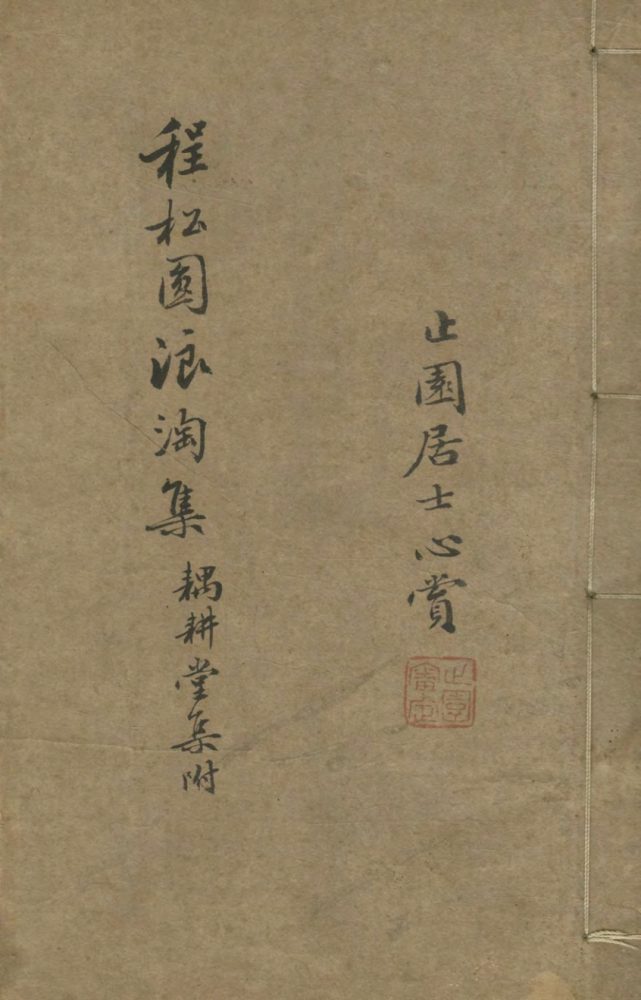 止園居士心賞
止園
審定
程松圓浪淘集 耦耕堂集附